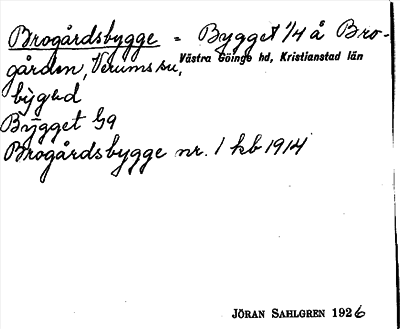 Brogårdsbygge = Bygget 1/4 å Bro-
gården, Verums sn, Västra Göinge hd, Kristianstad län
bygəd
Bygget Gg
Brogårdsbygge nr. 1 kb 1914
JÖRAN SAHLGREN 1926